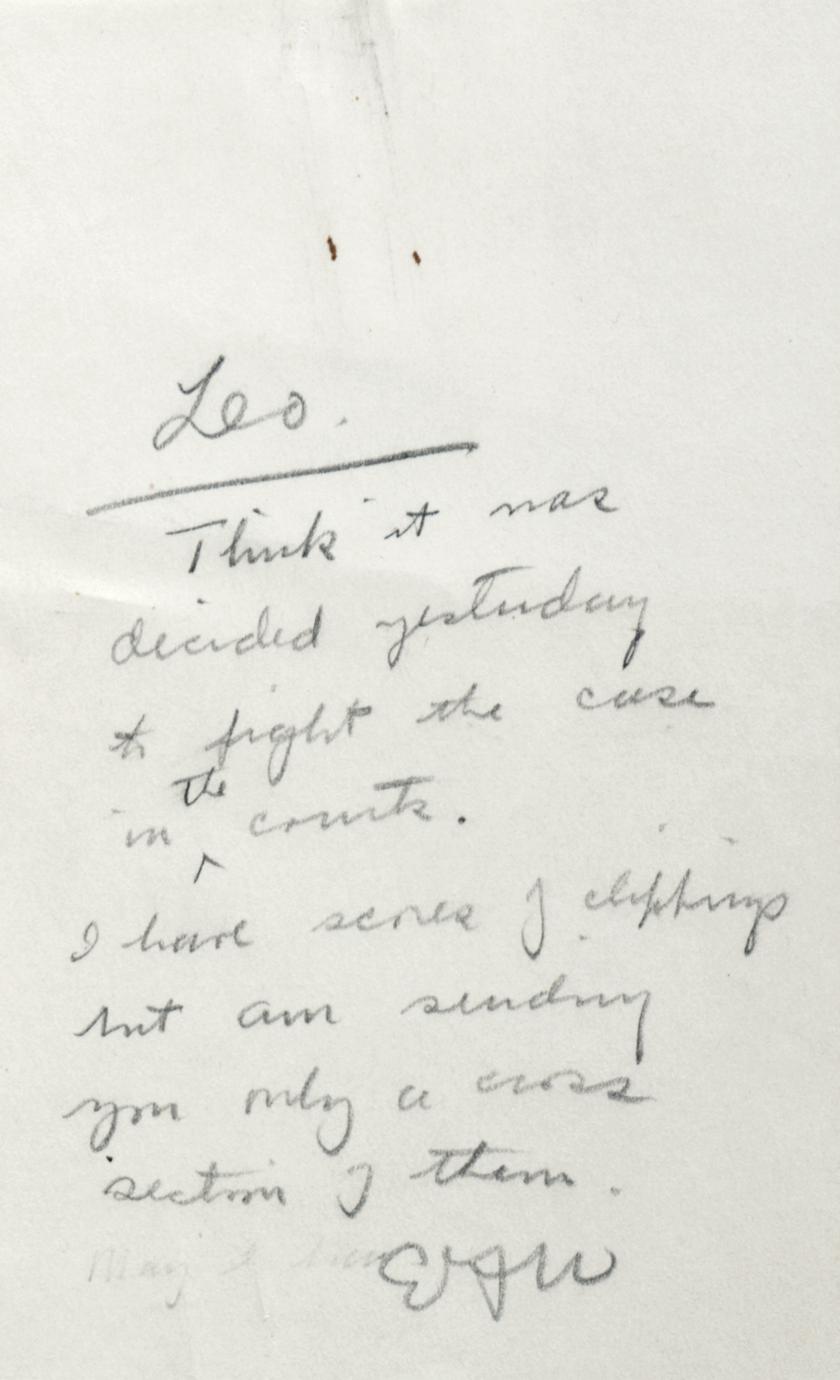 Leo.
Think it was
decided yesterday
to fight the case
in the courts.
I have scores of clippings
but am sending
you only a cross
section of them.
May I have